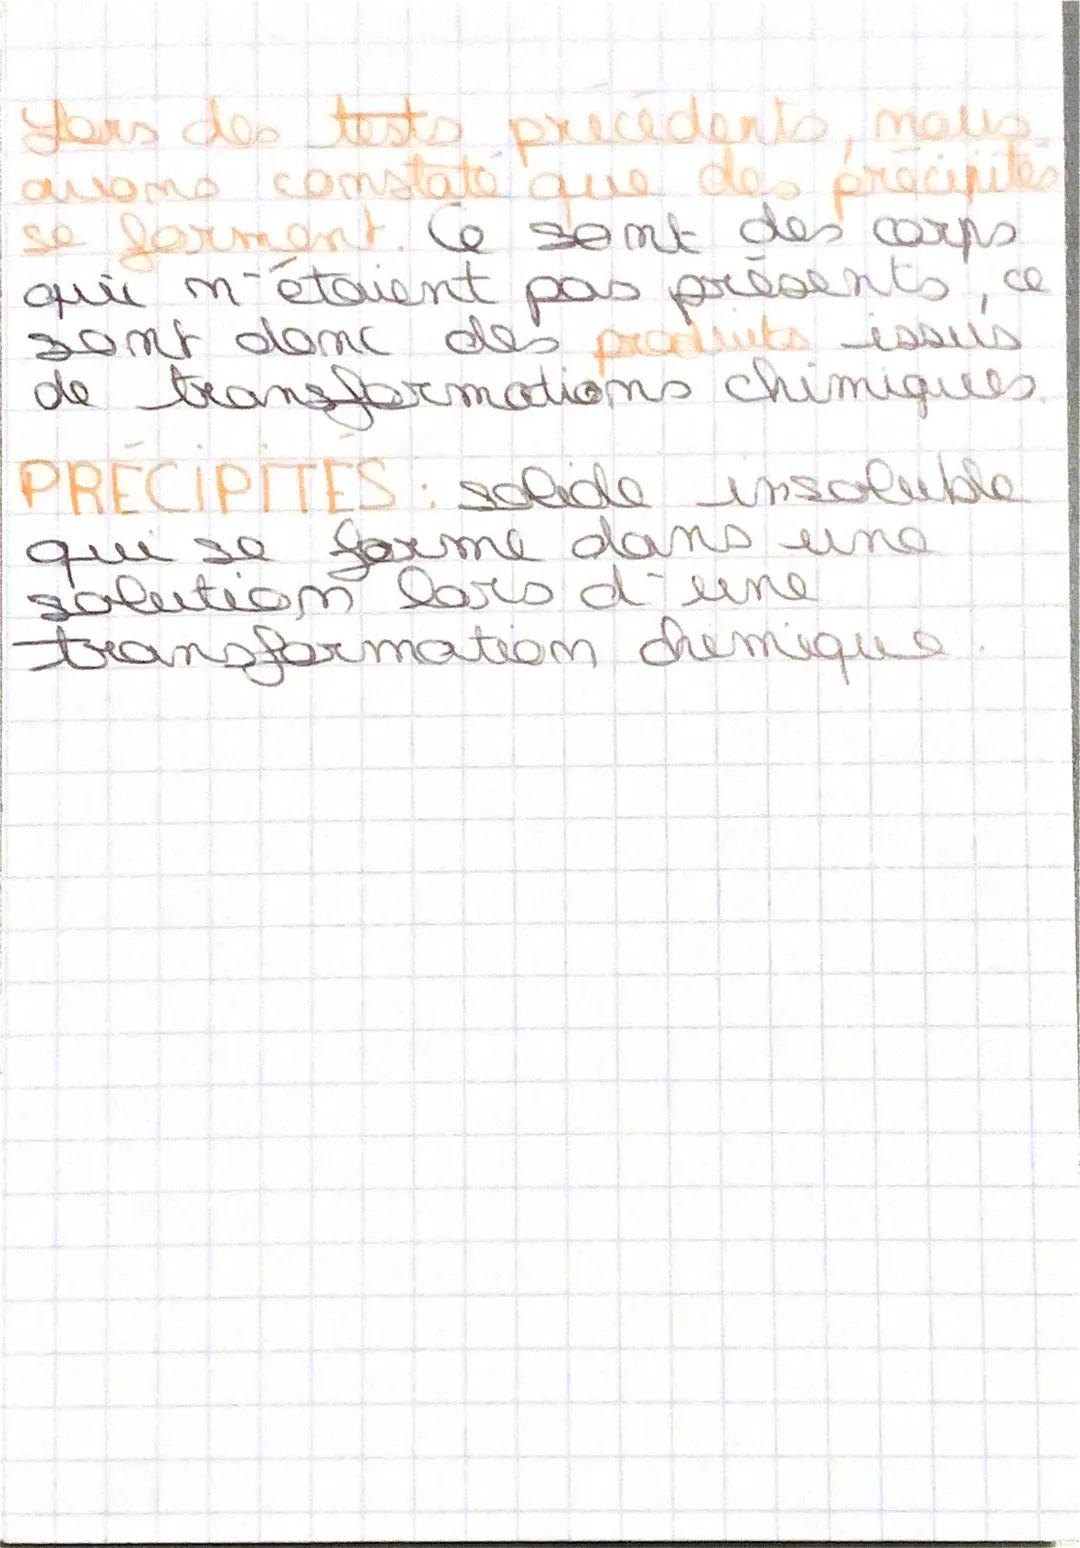 Lors des tests précédents, nous
avons constaté que des précipités
se forment. Ce sont des corps
qui n'étaient pas présents, ce
sont donc des produits issus
de transformations chimiques.
PRÉCIPITÉS : solide insoluble
qui se forme dans une
solution lors d'une
transformation chimique.